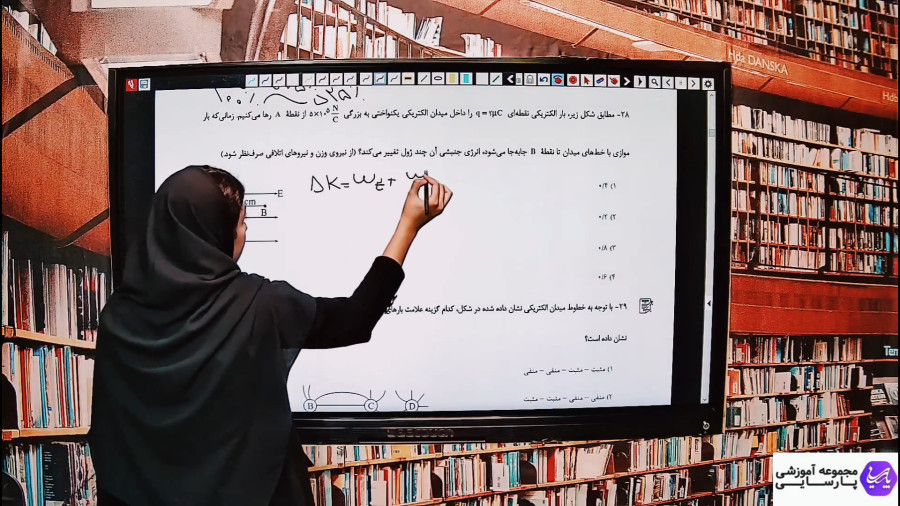 ۲۸- مطابق شکل زیر، بار الکتریکی نقطه‌ای q=۲μC را داخل میدان الکتریکی یکنواختی به بزرگی ۵×۱۰^۵ N/C از نقطهٔ A رها می‌کنیم. زمانی‌که بار
موازی با خط‌های میدان تا نقطهٔ B جابه‌جا می‌شود، انرژی جنبشی آن چند ژول تغییر می‌کند؟ (از نیروی وزن و نیروهای اتلافی صرف‌نظر شود.)
ΔK = W_E +
E
cm
B
۱) ۰/۴
۲) ۰/۲
۳) ۰/۸
۴) ۰/۶
۲۹- با توجه به خطوط میدان الکتریکی نشان داده شده در شکل، کدام گزینه علامت بارهای
نشان داده است؟
۱) مثبت - مثبت - منفی - منفی
۲) منفی - منفی - مثبت - مثبت
B C D
Hda DANSKA
مجموعه آموزشی
پارسایی